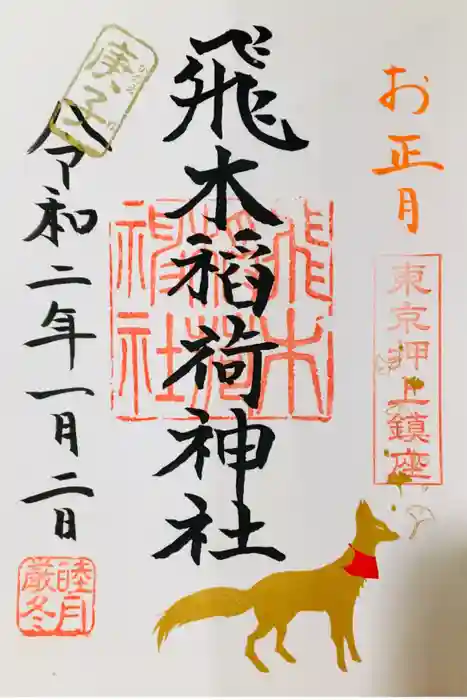 お正月
東京押上鎮座
飛木稲荷神社
飛木稲荷神社
庚子
令和二年一月二日
睦月
厳冬